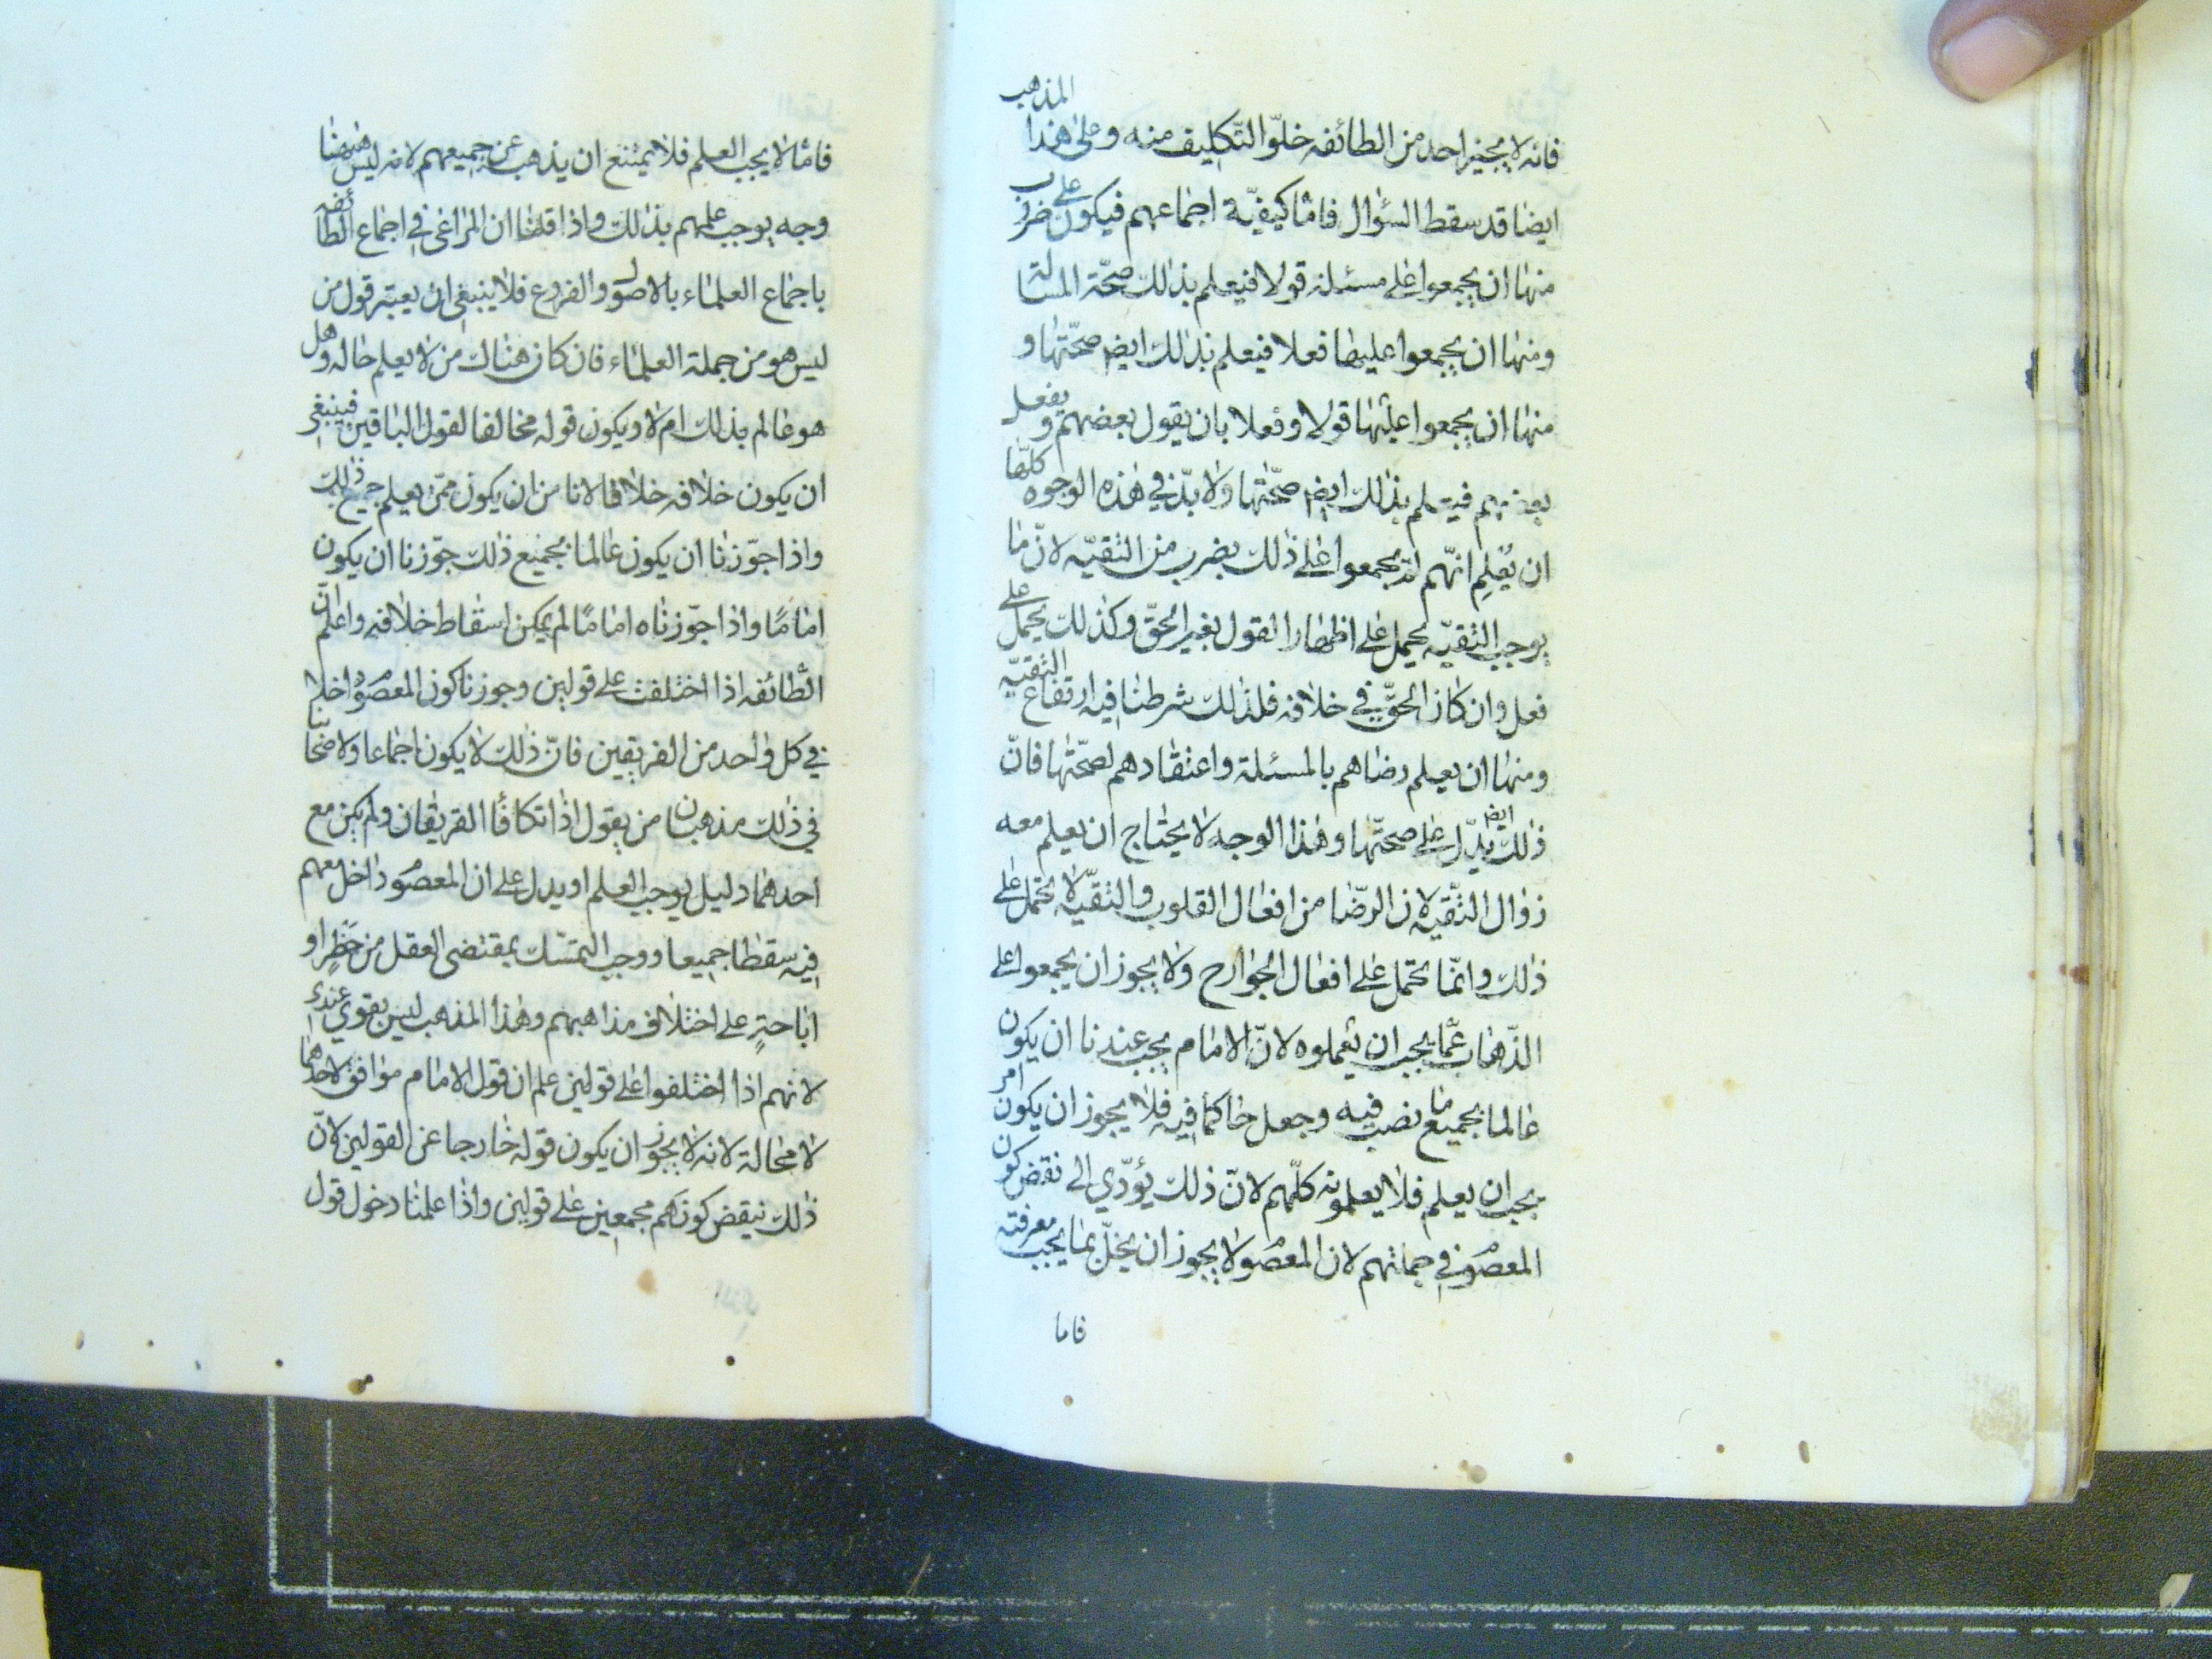 فانه لا يجيز احد من الطائفه خلوّ التّكليف منه وعلى هذا المذهب
ايضا قد سقط السئوال فامّا كيفيّة اجماعهم فيكون على ضرب
منها ان يجمعوا على مسئلة قولا فيعلم بذلك صحّة المسالة
ومنها ان يجمعوا عليها فعلا فيعلم بذلك ايض صحّتها و
منها ان يجمعوا عليها قولا وفعلا بان يقول بعضهم ويفعل
بعضهم فيعلم بذلك ايض صحّتها ولا بدّ في هذه الوجوه كلّها
ان يُعلم انّهم لم يجمعوا على ذلك بضرب من التقيّه لانّ ما
يوجب التقيّه يحمل على اظهار القول بغير الحقّ وكذلك يحمل على
فعل وان كان الحقّ في خلافه فلذلك شرطنا فيه ارتفاع التقيّه
ومنها ان يعلم رضاهم بالمسئلة واعتقادهم لصحّتها فانّ
ذلك ايض يدّل على صحتّها وهذا الوجه لا يحتاج ان يعلم معه
زوال التقيّه لان الرضّا من افعال القلوب والتقيّه لا تحمل على
ذلك وانّما تحمل على افعال الجوارح ولا يجوز ان يجمعوا على
الذّهاب عمّا يجب ان يعملوه لانّ الامام يجب عندنا ان يكون
عالما بجميع ما نصب فيه وجعل حاكما فيه فلا يجوز ان يكون امر
يجب ان يعلم فلا يعلمونه كلّهم لانّ ذلك يؤدّي الى نقض كون
المعصوم في جملتهم لان المعصوم لا يجوز ان يخلّ بما يجب معرفته
فاما
فامّا لا يجب العلم فلا يمتنع ان يذهب عن جميعهم لانه ليس ههنا
وجه يوجب علمهم بذلك واذا قلنا ان المراعى في اجماع الطائفه
باجماع العلماء بالاصول والفروع فلا ينبغي ان يعتبر قول من
ليس هو من جملة العلماء فان كان هناك من لا يعلم حاله وهل
هو عالم بذلك ام لا ويكون قوله مخالفا لقول الباقين فينبغي
ان يكون خلافه خلافا لانا من ان يكون ممّن يعلم جميع ذلك
واذا جوّزنا ان يكون عالما بجميع ذلك جوّزنا ان يكون
اماما واذا جوّزناه امامًا لم يمكن اسقاط خلافه واعلم انّ
الطائفه اذا اختلفت على قولين وجوزنا كون المعصوم داخلا
في كل واحد من الفريقين فانّ ذلك لا يكون اجماعا ولاصحابنا
في ذلك مذهبان من يقول اذا تكافأ الفريقان ولم يكن مع
احدهما دليل يوجب العلم او يدل على ان المعصوم داخل معهم
فيه سقطا جميعا ووجب التمسّك بمقتضى العقل من حظرٍ او
اباحةٍ على اختلاف مذاهبهم وهذا المذهب ليس بقوي عندي
لانهم اذا اختلفوا على قولين علم ان قول الامام موافق لاحدهما
لا محالة لانه لا يجوز ان يكون قوله خارجا عن القولين لانّ
ذلك ينقض كونهم مجمعين على قولين واذا علمنا دخول قول